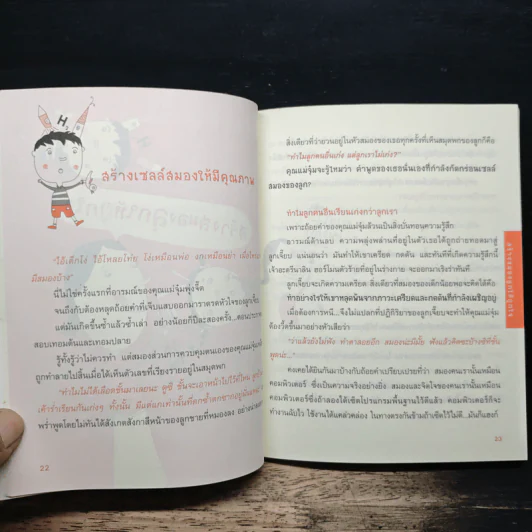 H
สร้างเซลล์สมองให้มีคุณภาพ
"ไอ้เด็กโง่ ไอ้โหลยโท่ย โง่เหมือนพ่อ งกเหมือนย่า เมื่อไหร่
มีสมองบ้าง"
นี่ไม่ใช่ครั้งแรกที่อารมณ์ของคุณแม่จุ๋มพุ่งจี๊ด
จนถึงกับต้องหลุดถ้อยคำที่เจ็บแสบออกมาราดรดหัวใจของลูกเจี๊ยบ
แต่มันเกิดขึ้นซ้ำแล้วซ้ำเล่า อย่างน้อยก็ปีละสองครั้ง
สอบเทอมต้นและเทอมปลาย
รู้ทั้งรู้ว่าไม่ควรทำ แต่สมองส่วนการควบคุมตนเองของคุณแม่จุ๋ม
ถูกทำลายไปสิ้นเมื่อได้เห็นตัวเลขที่เรียงรายอยู่ในสมุดพก
"ทำไมไม่ได้เลือดชั้นมาเลยนะ ดูซิ ชั้นจะเอาหน้าไปไว้ที่ไหน
เค้าร่ำเรียนกันเก่งๆ ทั้งนั้น มีแต่แกเท่านั้นที่
พร่ำพูดโดยไม่ทันได้สังเกตสังกาสีหน้าของลูกชายที่หมองลง
22
สิ่งเดียวที่ว่ายวนอยู่ในหัวสมองของเธอทุกครั้งที่เห็นสมุดพกของลูกก็คือ
"ทำไมลูกคนอื่นเก่ง แต่ลูกเราไม่เก่ง?"
คุณแม่จุ๋มจะรู้ไหมว่า คำพูดของเธอนั่นเองที่กำลังกัดกร่อนเซลล์
สมองของลูก?
ทำไมลูกคนอื่นเรียนเก่งกว่าลูกเรา
เพราะถ้อยคำของคุณแม่จุ๋มล้วนเป็นสิ่งบั่นทอนความรู้สึก
อารมณ์ด้านลบ ความพลุ่งพล่านที่อยู่ในตัวเธอได้ถูกถ่ายทอดมาสู่
ลูกเจี๊ยบ แน่นอนว่า มันทำให้เขาเครียด กดดัน และทันทีที่เกิดความรู้สึกนี้
เจ้าอะดรีนาลิน ฮอร์โมนตัวร้ายที่อยู่ในร่างกาย จะออกมาเริงร่าทันที
ลูกเจี๊ยบจะเกิดความเครียด สิ่งเดียวที่สมองของเด็กน้อยพอจะคิดได้คือ
ทำอย่างไรให้เขาหลุดพ้นจากภาวะเครียดและกดดันที่กำลังเผชิญอยู่
เมื่อต้องการหนี...จึงไม่แปลกที่ปฏิกิริยาของลูกเจี๊ยบจะทำให้คุณแม่จุ๋ม
ต้องวี้ดขึ้นมาอย่างหัวเสียว่า
"ว่าแล้วยังไม่ฟัง ทำตาลอยอีก สมองน่ะมีมั้ย
คงเคยได้ยินกันมาบ้างกับถ้อยคำเปรียบเปรยที่ว่า สมองคนเรานั้นเหมือน
คอมพิวเตอร์ ซึ่งเป็นความจริงอย่างยิ่ง สมองและจิตใจของคนเรานั้นเหมือน
คอมพิวเตอร์ซึ่งถ้าลองได้เซ็ตโปรแกรมพื้นฐานไว้ดีแล้ว คอมพิวเตอร์ก็จะ
ทำงานฉับไว ใช้งานได้คล่องคล่อง ในทางตรงกันข้ามถ้าเซ็ตไว้ไม่ดี...มันก็แฮงก์
23